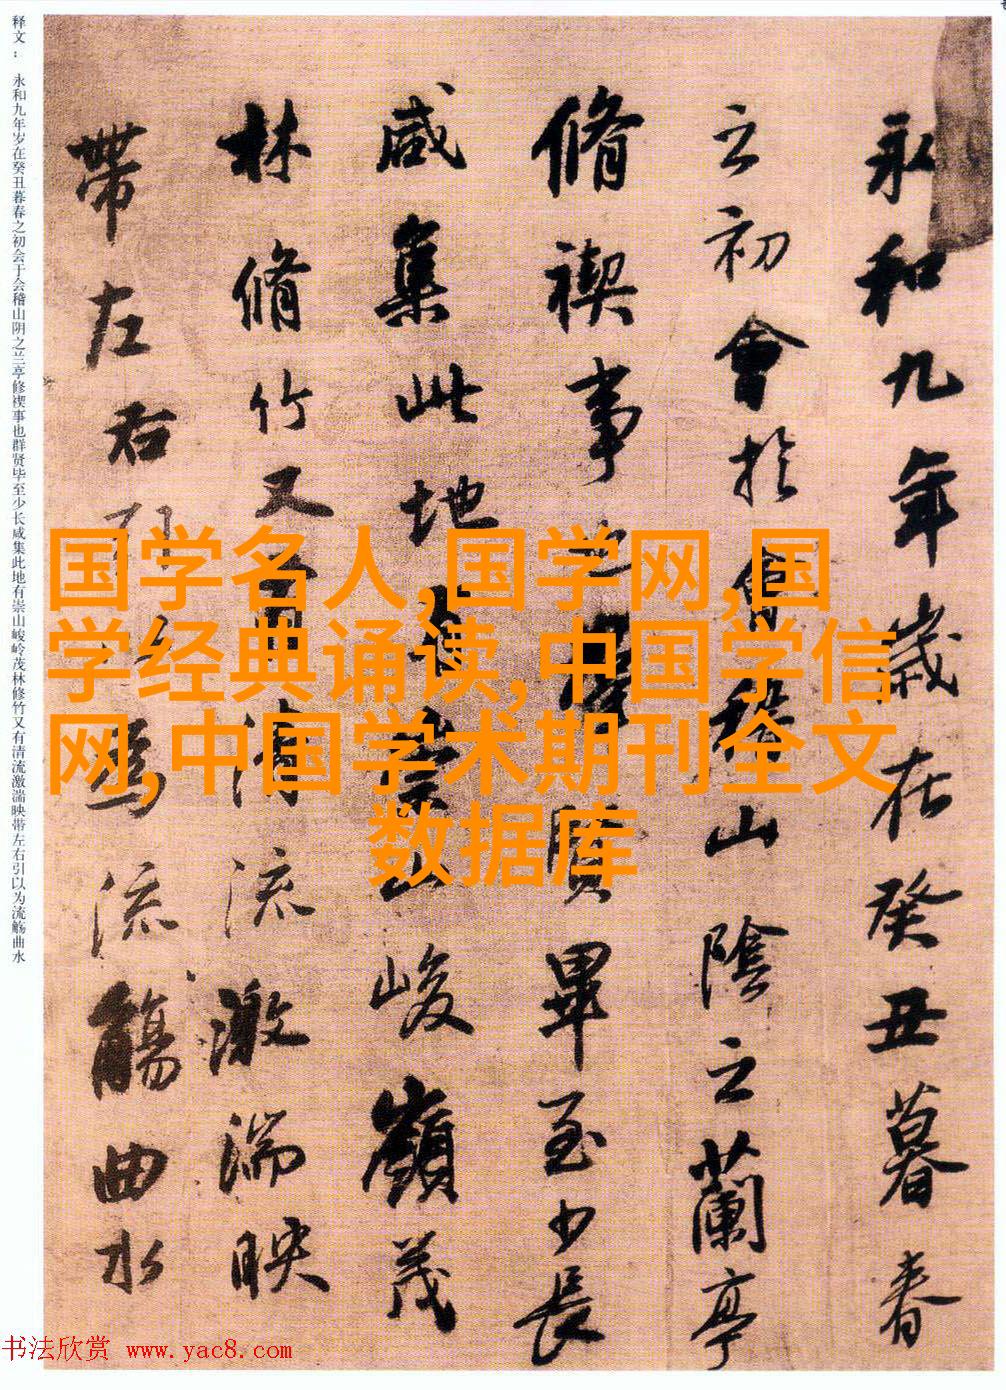 永和九年歲在癸丑暮春
之初會於會稽山陰之蘭亭
脩禊事也羣賢畢至少長
咸集此地有崇山峻嶺茂
林脩竹又有清流激湍映
帶左右引以為流觴曲水
释文： 永和九年岁在癸丑暮春之初会于会稽山阴之兰亭修禊事也群贤毕至少长咸集此地有崇山峻岭茂林修竹又有清流激湍映带左右引以为流觞曲水
国学名人,国学网,国
学经典诵读,中国学信
网,中国学术期刊全文
数据库
书法欣赏 www.yac8.com